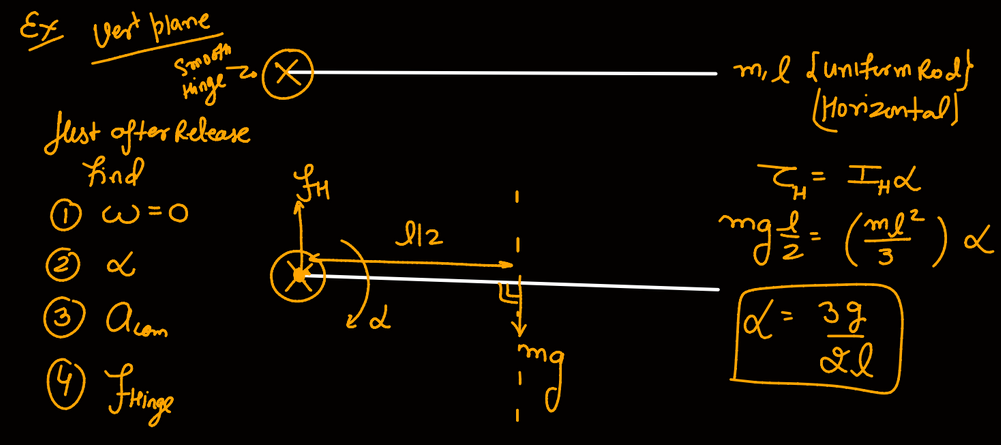 Ex Vert plane
Smooth
Hinge
m, l {Uniform Rod}
(Horizontal)
Just after Release
Find
① ω = 0
② α
③ a_com
④ f_Hinge
f_H
l/2
α
mg
τ_H = I_H α
mg l/2 = (ml²/3) α
α = 3g/2l